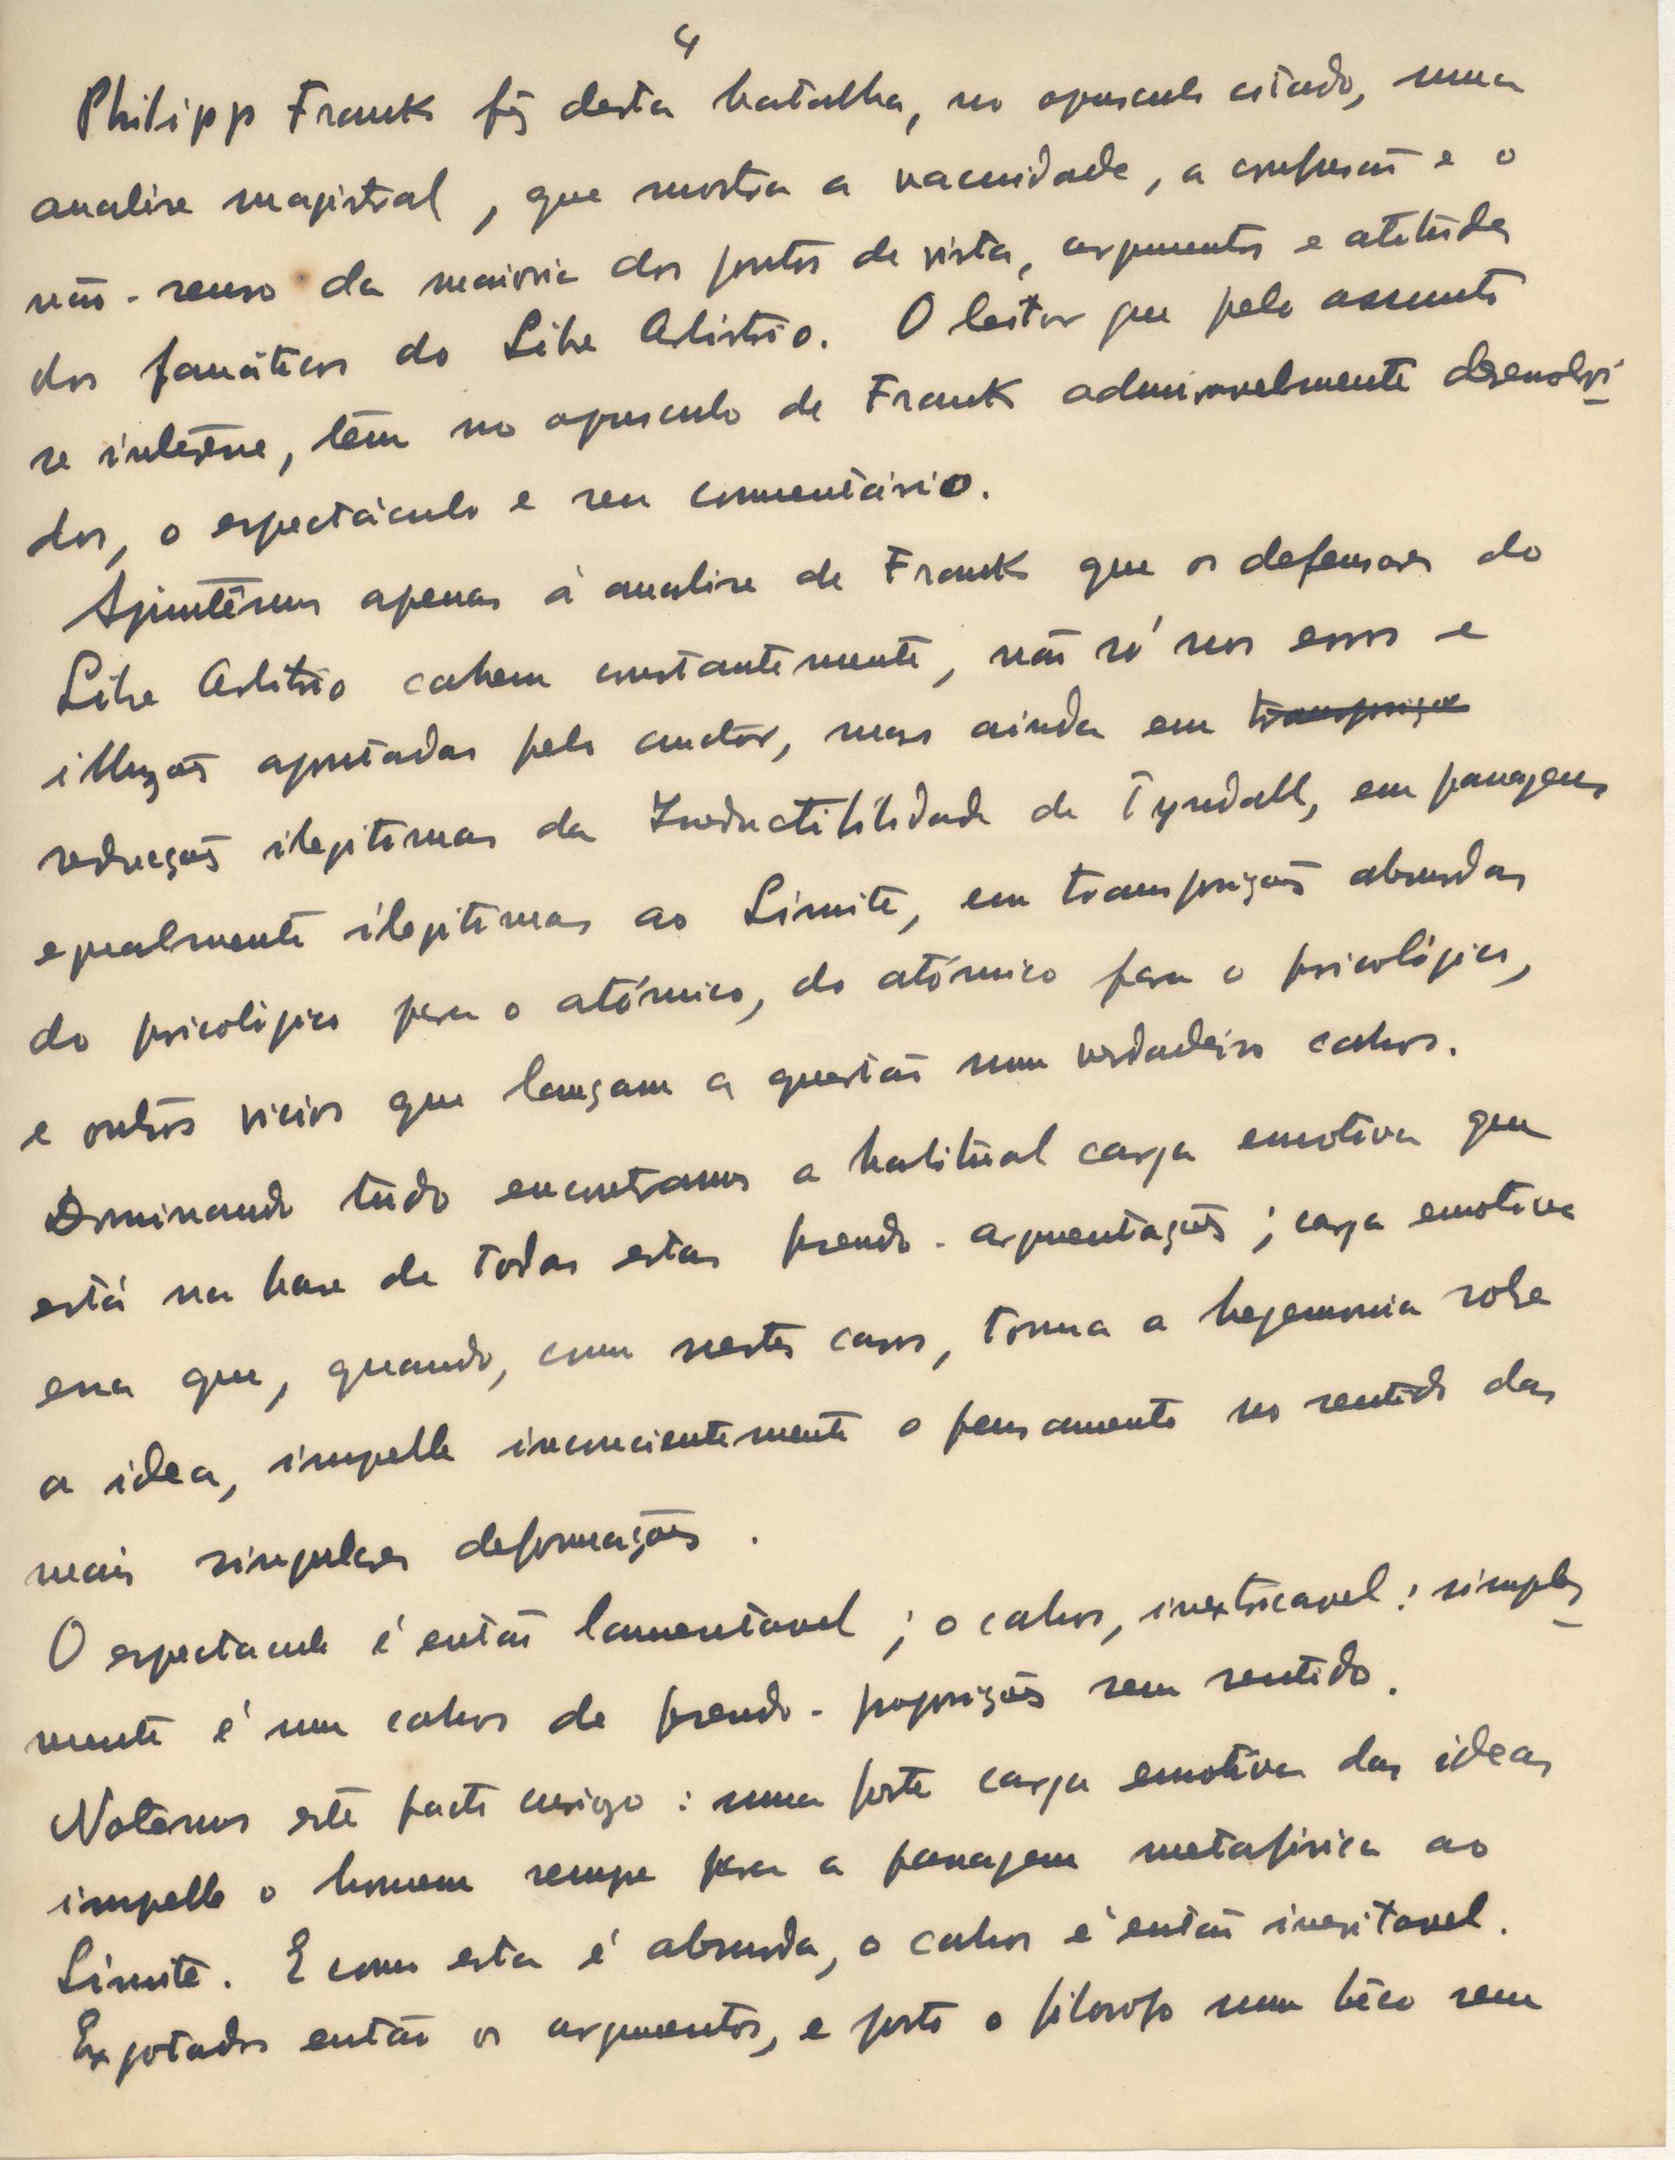 4
Philipp Frank fêz desta batalha, no opusculo citado, uma
analise magistral, que mostra a vacuidade, a confusão e o
não-senso da maioria dos pontos de vista, argumentos e atitúdes
dos fanáticos do Livre Arbítrio. O leitor que pelo assunto
se interêsse, têm no opusculo de Frank admiravelmente desenvolvi
dos, o espectáculo e seu comentário.
Ajuntêmos apenas à analise de Frank que os defensores do
Livre Arbitrio cahem constantemente, não só nos erros e
illuzões apontadas pelo auctôr, mas ainda em transposições
reducções ilegitimas da Ireductibilidade de Tyndall, em passagens
egualmente ilegitimas ao Limite, em transposições absurdas
do psicológico para o atómico, do atómico para o psicológico,
e outros vicios que lançam a questão num verdadeiro cahos.
Dominando tudo encontramos a habitual carga emotiva que
está na base de todas estas pseudo-argumentações; carga emotiva
essa que, quando, como nestes casos, toma a hegemonia sobre
a idea, impelle inconscientemente o pensamento no sentido das
mais singulares deformações.
O espectaculo é então lamentavel; o cahos, inextricavel: simples
mente é um cahos de pseudo-proposições sem sentido.
Notemos este facto curiozo: uma forte carga emotiva das ideas
impelle o homem sempre para a passagem metafisica ao
Limite. E como esta é absurda, o cahos é então inevitavel.
Exgotados então os argumentos, e posto o filosofo num bêco sem